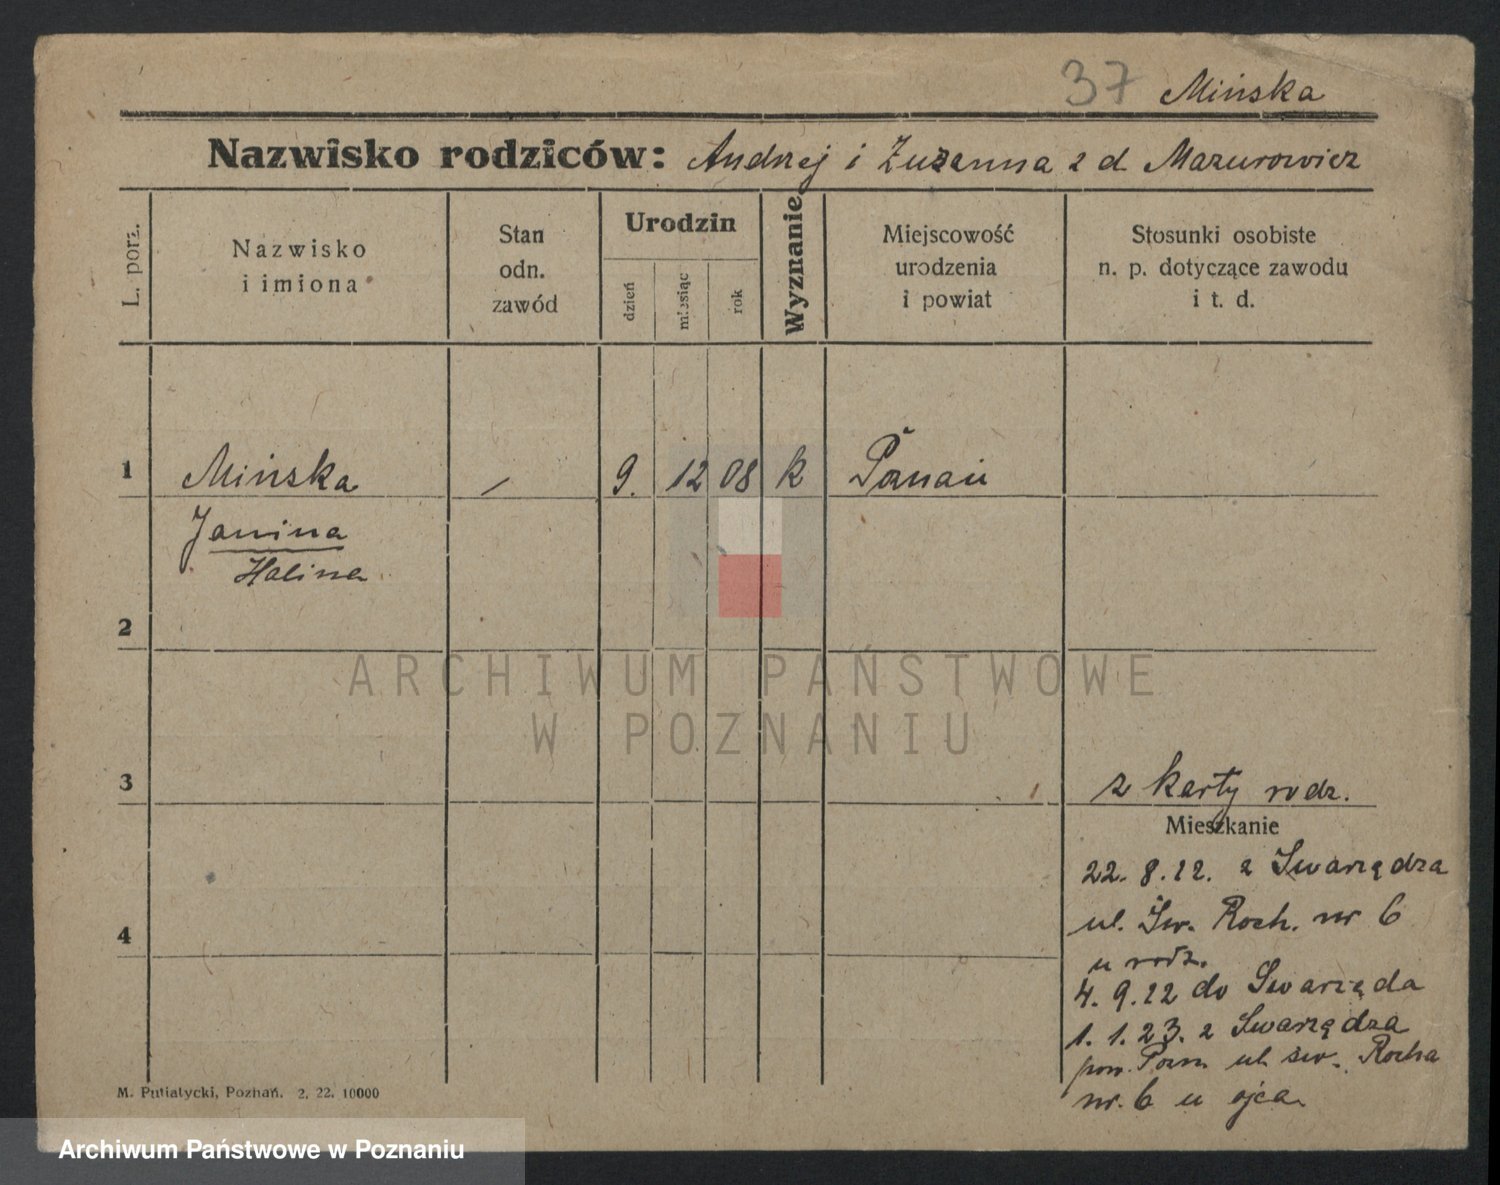 37 Mińska
Nazwisko rodziców: Andrzej i Zuzanna z d Mazurowicz
L. porz.
Nazwisko
i imiona
Stan
odn.
zawód
Urodzin
dzień
miesiąc
rok
Wyznanie
Miejscowość
urodzenia
i powiat
Stosunki osobiste
n. p. dotyczące zawodu
i t. d.
1 Mińska / 9. 12 08 k Poznań
Janina
Halina
2
ARCHIWUM PAŃSTWOWE
W POZNANIU
3
z karty rodz.
Mieszkanie
22. 8. 12. z Swarzędza
ul. Św. Roch. nr 6
u rodz.
4
4. 9. 12 do Swarzęda
1. 1. 23. z Swarzędza
pow. Pozn ul. św. Rocha
nr. 6 u ojca
M. Putiatycki, Poznań. 2. 22. 10000
Archiwum Państwowe w Poznaniu